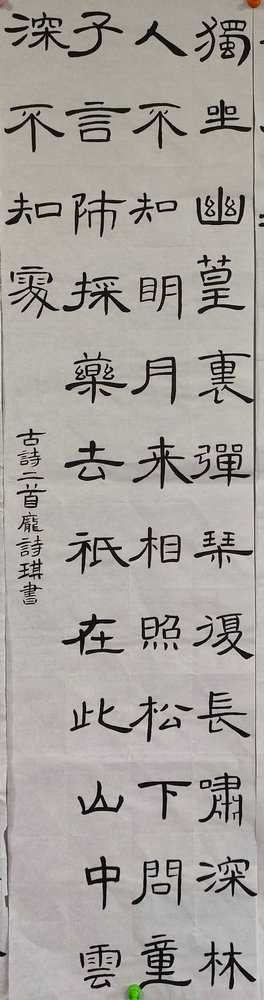 獨坐幽篁裏彈琴復長嘯深林
人不知明月来相照松下問童
子言師採藥去祇在此山中雲
深不知處
古詩二首龐詩琪書